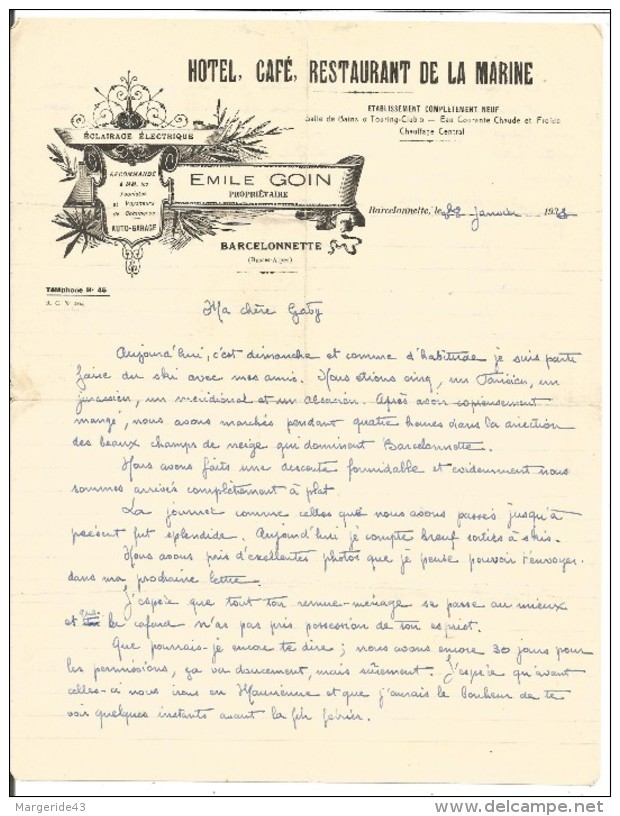 HOTEL, CAFÉ, RESTAURANT DE LA MARINE
ETABLISSEMENT COMPLETEMENT NEUF
Salle de Bains o Touring-Club o — Eau Courante Chaude et Froide
Chauffage Central
ÉCLAIRAGE ÉLECTRIQUE
RECOMMANDÉ
à MM. les
Touristes
et Voyageurs
de Commerce
AUTO-GARAGE
EMILE GOIN
PROPRIÉTAIRE
BARCELONNETTE
(Basses-Alpes)
Barcelonnette, le 28 janvier 193
Téléphone Nº 46
Ma chère Gaby
Aujourd'hui, c'est dimanche et comme d'habitude je suis parti
faire du ski avec mes amis. Nous étions cinq, un Parisien, un
jurassien, un méridional et un alsacien. Après avoir copieusement
mangé, nous avons marchés pendant quatre heures dans la direction
des beaux champs de neige qui dominent Barcelonnette.
Nous avons faits une descente formidable et évidemment nous
sommes arrivés complètement à plat
La journée comme celles que nous avons passés jusqu'à
présent fut splendide. Aujourd'hui je compte neuf sorties à skis.
Nous avons pris d'excellentes photos que je pense pouvoir t'envoyer
dans ma prochaine lettre.
J'espère que tout ton remue-ménage se passe au mieux
et que le cafard n'as pas pris possession de ton esprit.
Que pourrais-je encore te dire ; nous avons encore 30 jours pour
les permissions, ça va doucement, mais sûrement. J'espère qu'avant
celles-ci nous irons en Maurienne et que j'aurais le bonheur de te
voir quelques instants avant la fin février.
Margeride43
delcampe.net